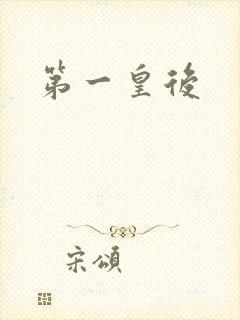 第一皇後
宋頌